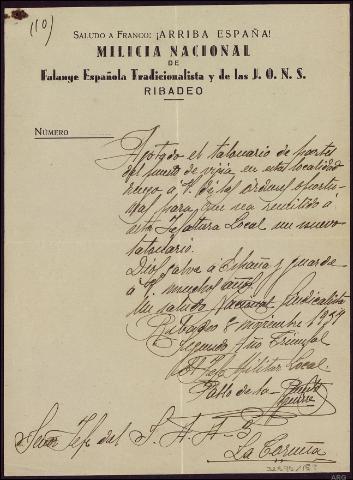 (10)
SALUDO A FRANCO: ¡ARRIBA ESPAÑA!
MILICIA NACIONAL
DE
Falange Española Tradicionalista y de las J. O. N. S.
RIBADEO
NÚMERO
Agotado el talonario de partes
del puesto de vigia, en esta localidad
ruego á V. dé las órdenes oportu-
nas para que sea remitido á
esta Jefatura Local un nuevo
talonario.
Dios salve á España y guarde
á V. muchos años.
Un saludo Nacional Sindicalista
Ribadeo 8 noviembre 1939
Segundo Año Triunfal
El Jefe Militar Local.
Pablo de la
Señor Jefe del S. A. A.
La Coruña
ARG